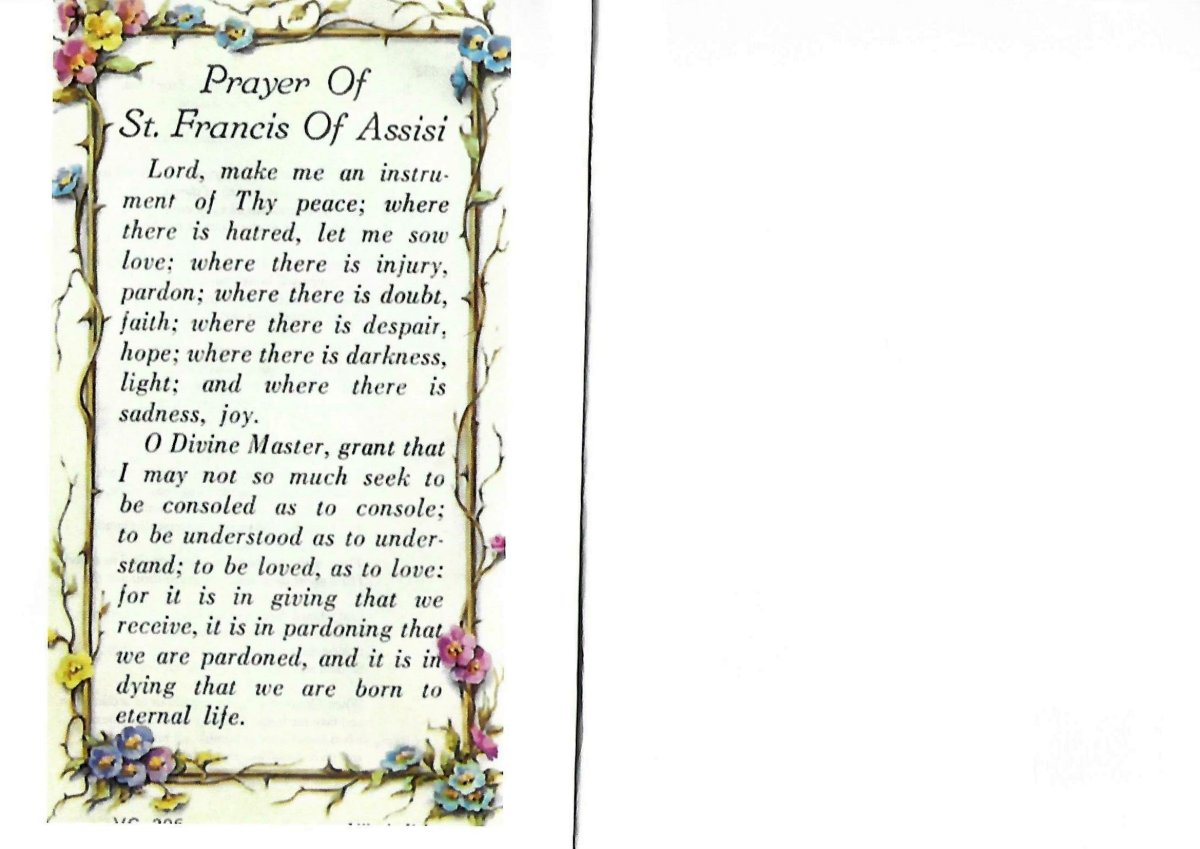 Prayer Of
St. Francis Of Assisi
Lord, make me an instru-
ment of Thy peace; where
there is hatred, let me sow
love; where there is injury,
pardon; where there is doubt,
faith; where there is despair,
hope; where there is darkness,
light; and where there is
sadness, joy.
O Divine Master, grant that
I may not so much seek to
be consoled as to console;
to be understood as to under-
stand; to be loved, as to love:
for it is in giving that we
receive, it is in pardoning that
we are pardoned, and it is in
dying that we are born to
eternal life.